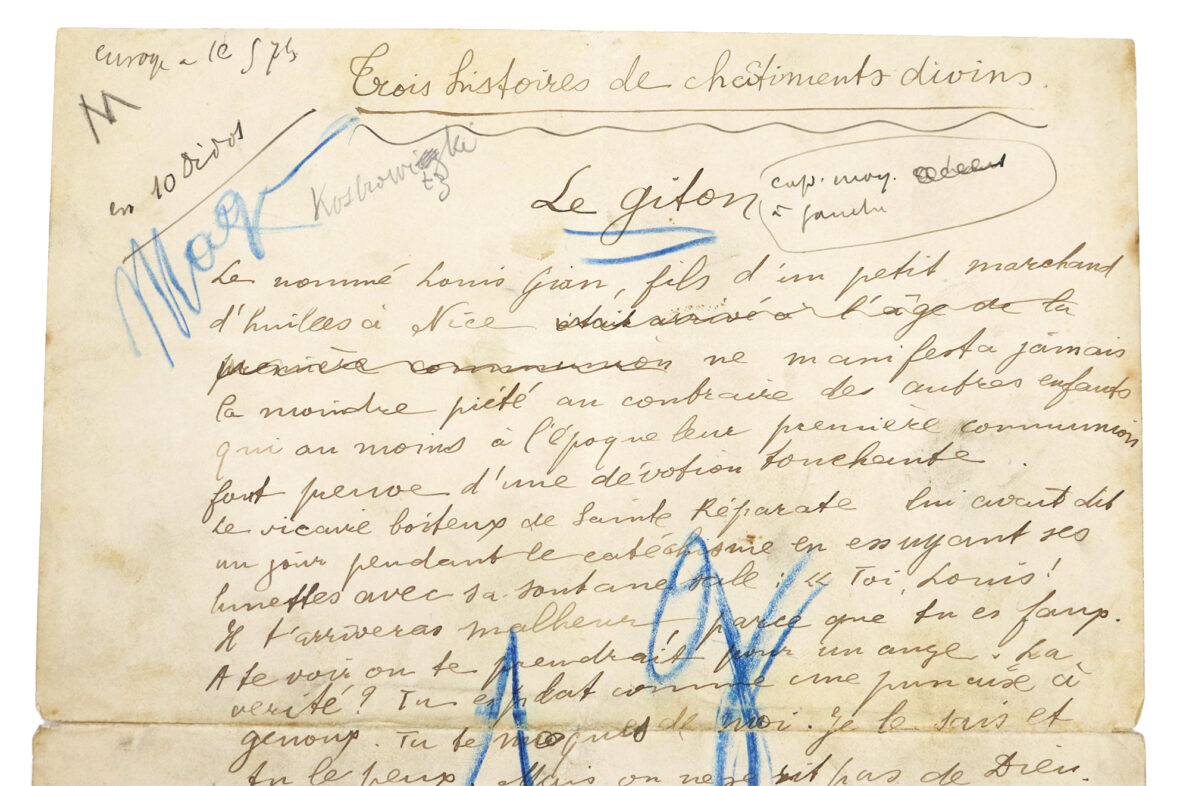 Trois histoires de châtiments divins.
M
en 10 Didot
Mag
Kostrowitzki
Le giton
cap. moy.
à gauche
Le nommé Louis Gian, fils d'un petit marchand
d'huiles à Nice était arrivé à l'âge de la
première communion ne manifesta jamais
la moindre piété au contraire des autres enfants
qui au moins à l'époque leur première communion
font preuve d'une dévotion touchante.
Le vicaire boiteux de Sainte Réparate lui avait dit
un jour pendant le catéchisme en essuyant ses
lunettes avec sa soutane sale : « Toi Louis !
Il t'arriveras malheur parce que tu es faux.
A te voir on te prendrait pour un ange. La
verité ? Tu es plat comme une punaise à
genoux. Tu te moques de moi. Je le sais et
tu le peux. Mais on ne se rit pas de Dieu.